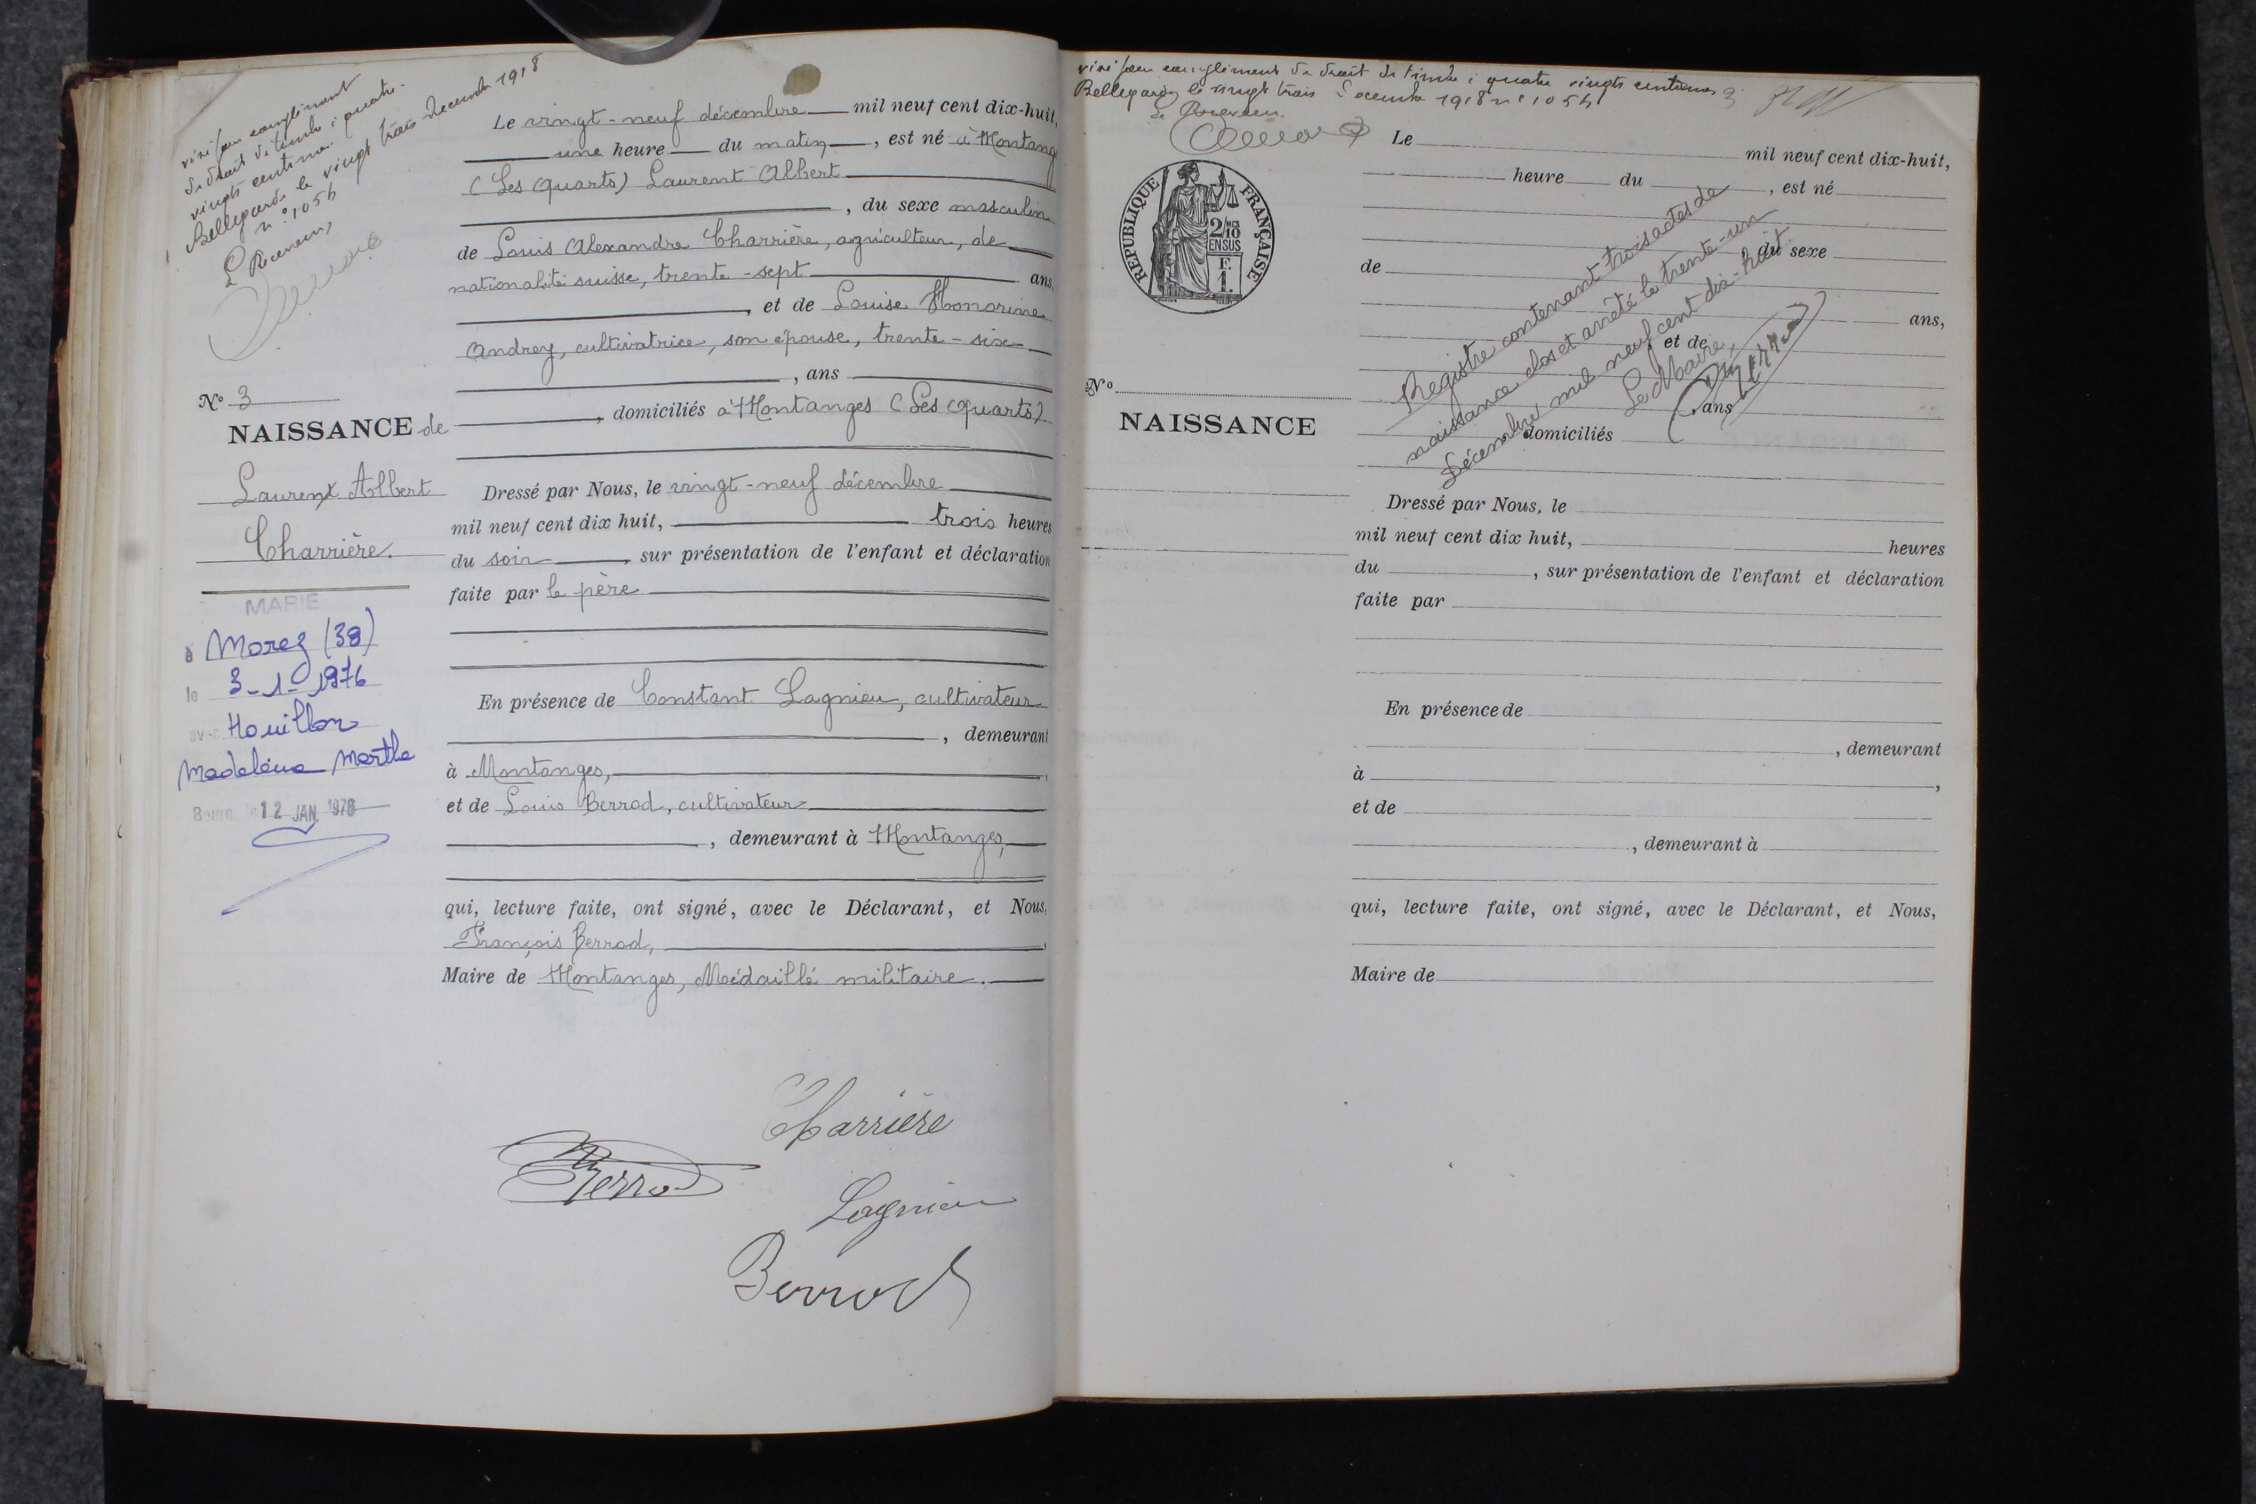 visé pour complément
de droit de timbre : quatre-
vingts centimes
Bellegarde le vingt trois décembre 1918
n° 1056
Le Receveur,
N° 3
NAISSANCE de
Laurent Albert
Charrière.
MARIE
à Morez (39)
le 3-1-1976
avec Houillon
Madeleine Marthe
Bourg, le 12 JAN. 1976
Le vingt-neuf décembre mil neuf cent dix-huit,
une heure du matin, est né à Montanges
(Les Quarts) Laurent Albert
, du sexe masculin
de Louis Alexandre Charrière, agriculteur, de
nationalité suisse, trente-sept ans,
, et de Louise Honorine
Andrey, cultivatrice, son épouse, trente-six
, ans
, domiciliés à Montanges (Les Quarts)
Dressé par Nous, le vingt-neuf décembre
mil neuf cent dix huit, trois heures
du soir, sur présentation de l'enfant et déclaration
faite par le père
En présence de Constant Lagnieu, cultivateur
, demeurant
à Montanges,
et de Louis Berrod, cultivateur
, demeurant à Montanges,
qui, lecture faite, ont signé, avec le Déclarant, et Nous,
François Berrod,
Maire de Montanges, Médaillé militaire.
Charrière
Berrod
Lagnieu
Berrod
visé pour complément de droit de timbre : quatre vingts centimes
Bellegarde le vingt trois décembre 1918 n° 1056
Le Receveur
REPUBLIQUE FRANÇAISE
2/10
EN SUS
F.
1.
N°
NAISSANCE
Le mil neuf cent dix-huit,
heure du , est né
du sexe
de
ans,
et de
, ans
domiciliés
Registre contenant trois actes de
naissance clos et arrêté le trente-un
Décembre mil neuf cent dix-huit.
Le Maire,
Berrod
Dressé par Nous, le
mil neuf cent dix huit, heures
du , sur présentation de l'enfant et déclaration
faite par
En présence de
, demeurant
à ,
et de
, demeurant à
qui, lecture faite, ont signé, avec le Déclarant, et Nous,
Maire de